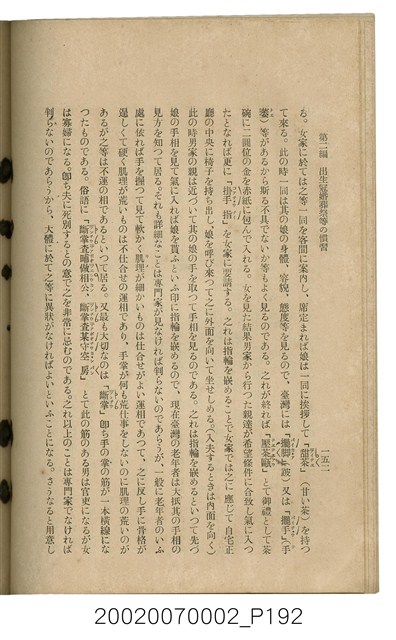 第二編　出生冠婚葬祭等の慣習
一五二
る。女家に於ては之等一同を客間に案内し、席定まれば娘は一同に挨拶して「甜茶」（甘い茶）を持つ
て來る。此の時一同は其の娘の身體、容貌、態度等を見るので、臺灣には「擺脚、跛）又は「擺手」（手
萎）等があるから斯る不具でないか等もよく見るのである。之れが終れば「壓茶甌」とて御禮として茶
碗に二圓位の金を赤紙に包んで入れる。女を見た結果男家から行つた親達が希望條件に合致し氣に入つ
たとなれば更に「掛手指」を女家に要請する。之れは指輪を嵌めることで女家では之に應じて自宅正
廳の中央に椅子を持ち出し、娘を呼び來つて之に外面を向いて坐せしめる。（入夫するときは内面を向く）
此の時男家の親は近づいて其の娘の手を取つて手相を見るのである。之れは指輪を嵌めるといつて先づ
娘の手相を見て氣に入れば娘を貰ふといふ印に指輪を嵌めるので、現在臺灣の老年者は大抵其の手相の
見方を知つて居る。それも詳細なことは專門家が見なければ判らないのであらうが、一般に老年者のいふ
處に依れば手を握つて見て軟かく肌理が細かいものは仕合せがよい運相であつて、之に反し手に骨格が
逞しくて硬く肌理が荒いものは不仕合せの運相であり、手掌が何も荒仕事をしないのに肌理の荒いのが
あるが之等は不運の相であるといつて居る。又最も大切なのは「斷掌」卽ち手の掌の筋が一本橫線にな
つたものである。俗語に「斷掌查晡做相公、斷掌查某守空房」とて此の筋のある男は官吏になるが女
は寡婦になる。卽ち夫に死別するとの意で之を非常に忌むのである。之れ以上のことは專門家でなければ
判らないのであらうから、大體に於て之等に異狀がなければよいといふことになる。さうなると用意し
20020070002_P192